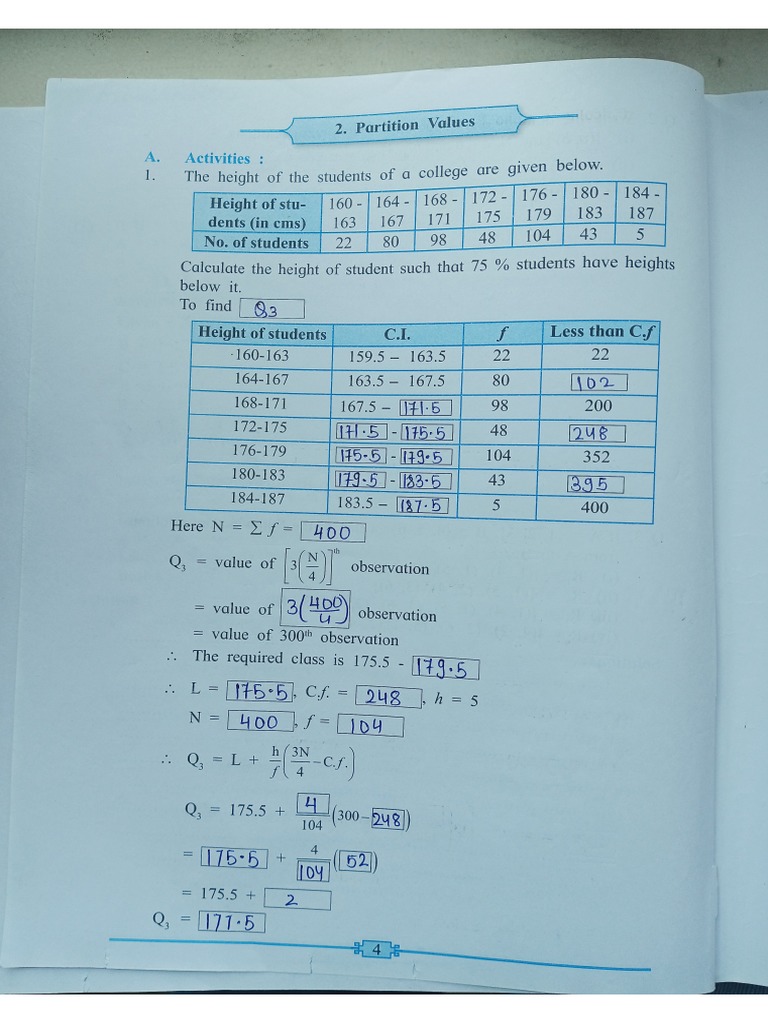 2. Partition Values
A. Activities :
1. The height of the students of a college are given below.
Height of stu- 160 - 164 - 168 - 172 - 176 - 180 - 184 -
dents (in cms) 163 167 171 175 179 183 187
No. of students 22 80 98 48 104 43 5
Calculate the height of student such that 75 % students have heights
below it.
To find Q3
Height of students C.I. f Less than C.f
160-163 159.5 – 163.5 22 22
164-167 163.5 – 167.5 80 102
168-171 167.5 – 171.5 98 200
172-175 171.5 - 175.5 48 248
176-179 175.5 - 179.5 104 352
180-183 179.5 - 183.5 43 395
184-187 183.5 – 187.5 5 400
Here N = ∑ f = 400
Q₃ = value of [3(N/4)]th observation
= value of 3(400/4) observation
= value of 300th observation
∴ The required class is 175.5 - 179.5
∴ L = 175.5, C.f. = 248, h = 5
N = 400, f = 104
∴ Q₃ = L + h/f (3N/4 – C.f.)
Q₃ = 175.5 + 4/104 (300 – 248)
= 175.5 + 4/104 (52)
= 175.5 + 2
Q₃ = 177.5
4